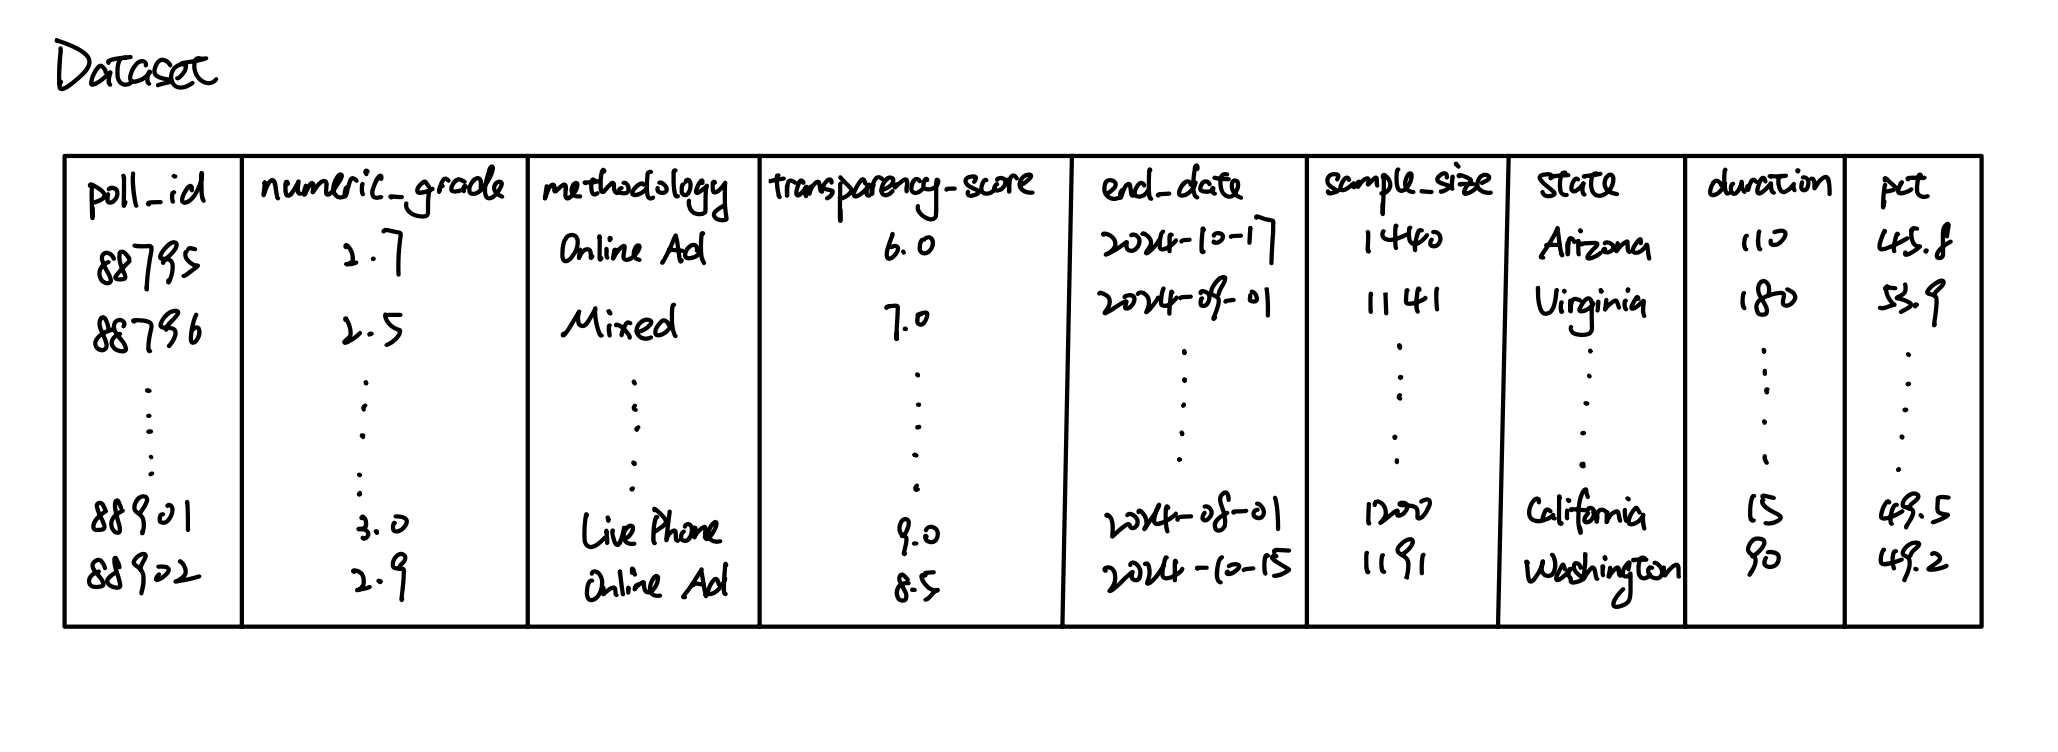 Dataset
poll_id numeric_grade methodology transparency-score end_date sample_size state duration pct
88795 2.7 Online Ad 6.0 2024-10-17 1440 Arizona 110 45.8
88796 2.5 Mixed 7.0 2024-09-01 1141 Virginia 180 53.9
88901 3.0 Live Phone 9.0 2024-08-01 1200 California 15 49.5
88902 2.9 Online Ad 8.5 2024-10-15 1191 Washington 90 49.2